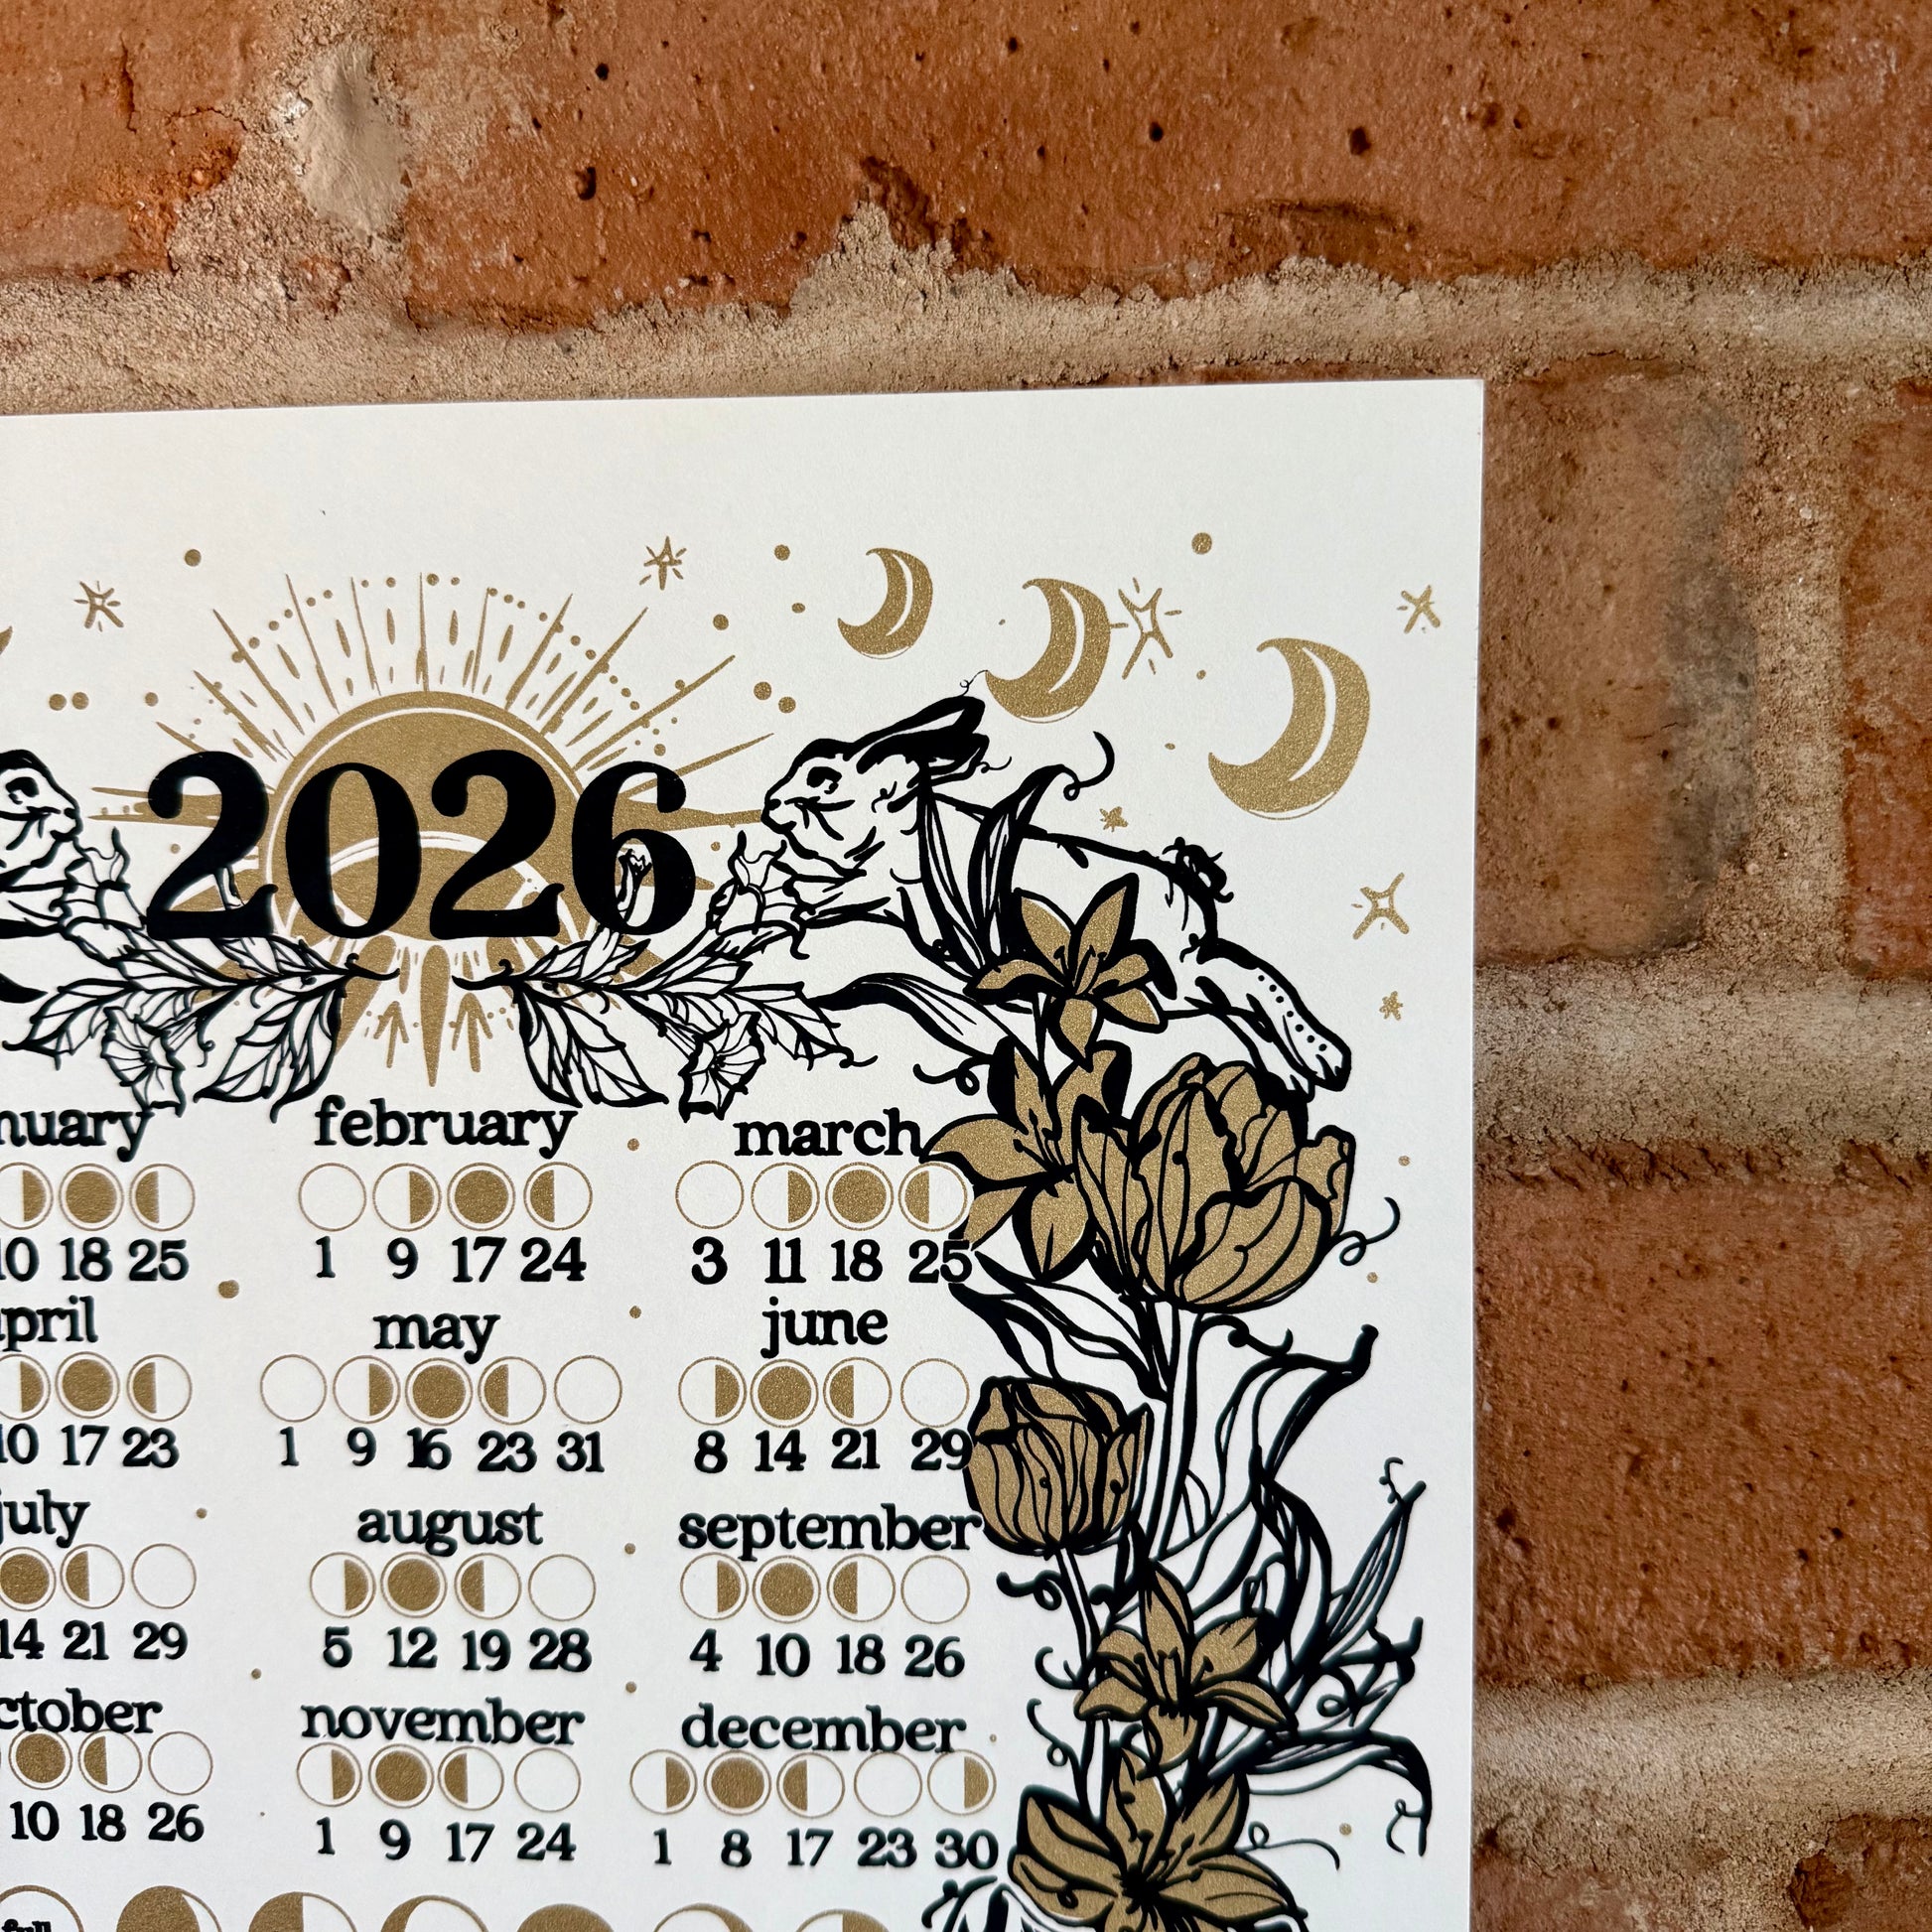 2026
nuary february march
10 18 25 1 9 17 24 3 11 18 25
pril may june
10 17 23 1 9 16 23 31 8 14 21 29
july august september
14 21 29 5 12 19 28 4 10 18 26
ctober november december
10 18 26 1 9 17 24 1 8 17 23 30
full